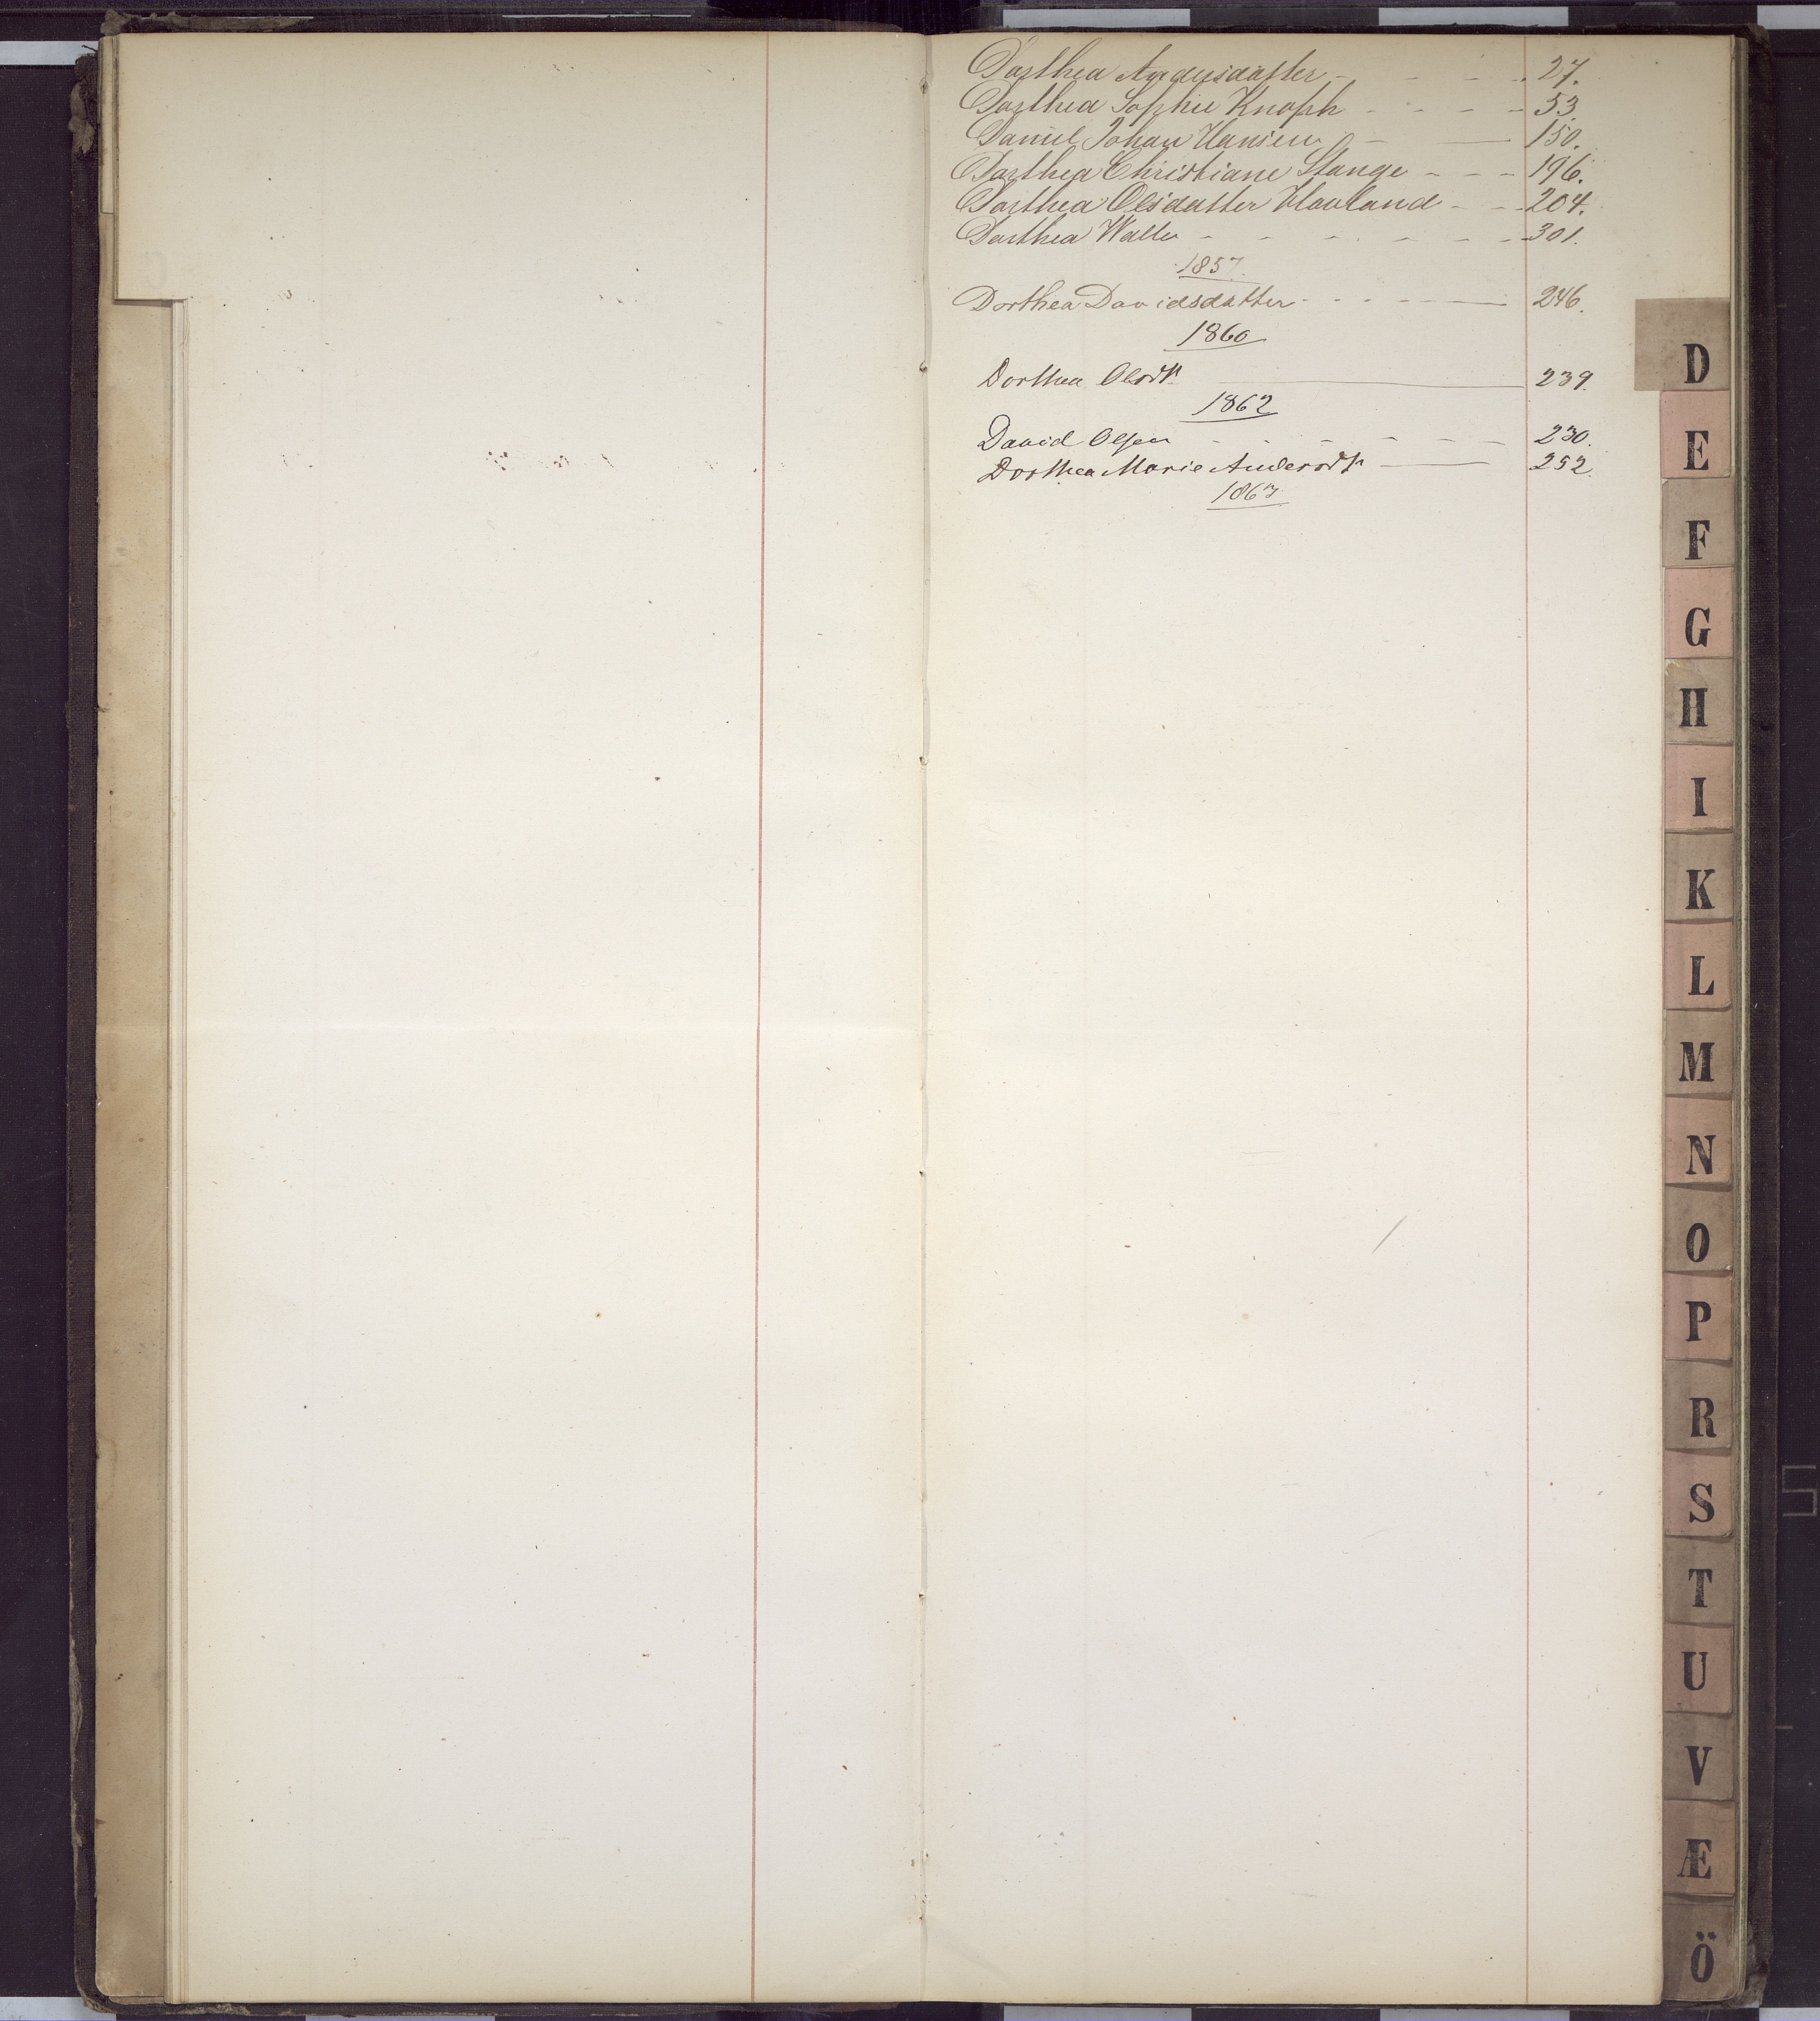 Dorthea Andersdatter - - - - 27.
Dorthea Sophie Knoph - - - - 53.
Daniel Johan Hansen - — 150.
Dorthea Christiane Stange - - - 196.
Dorthea Olsdatter Hauland - - 204.
Dorthea Walle - - - - - - - 301.
1857.
Dorthea Davidsdatter - - - - - — 246.
1860
Dorthea Olsdtr. — 239.
1862
David Olsen - - - - - - 230.
Dorthea Marie Andersdtr — 252.
1863
D
E
F
G
H
I
K
L
M
N
O
P
R
S
T
U
V
Æ
Ö